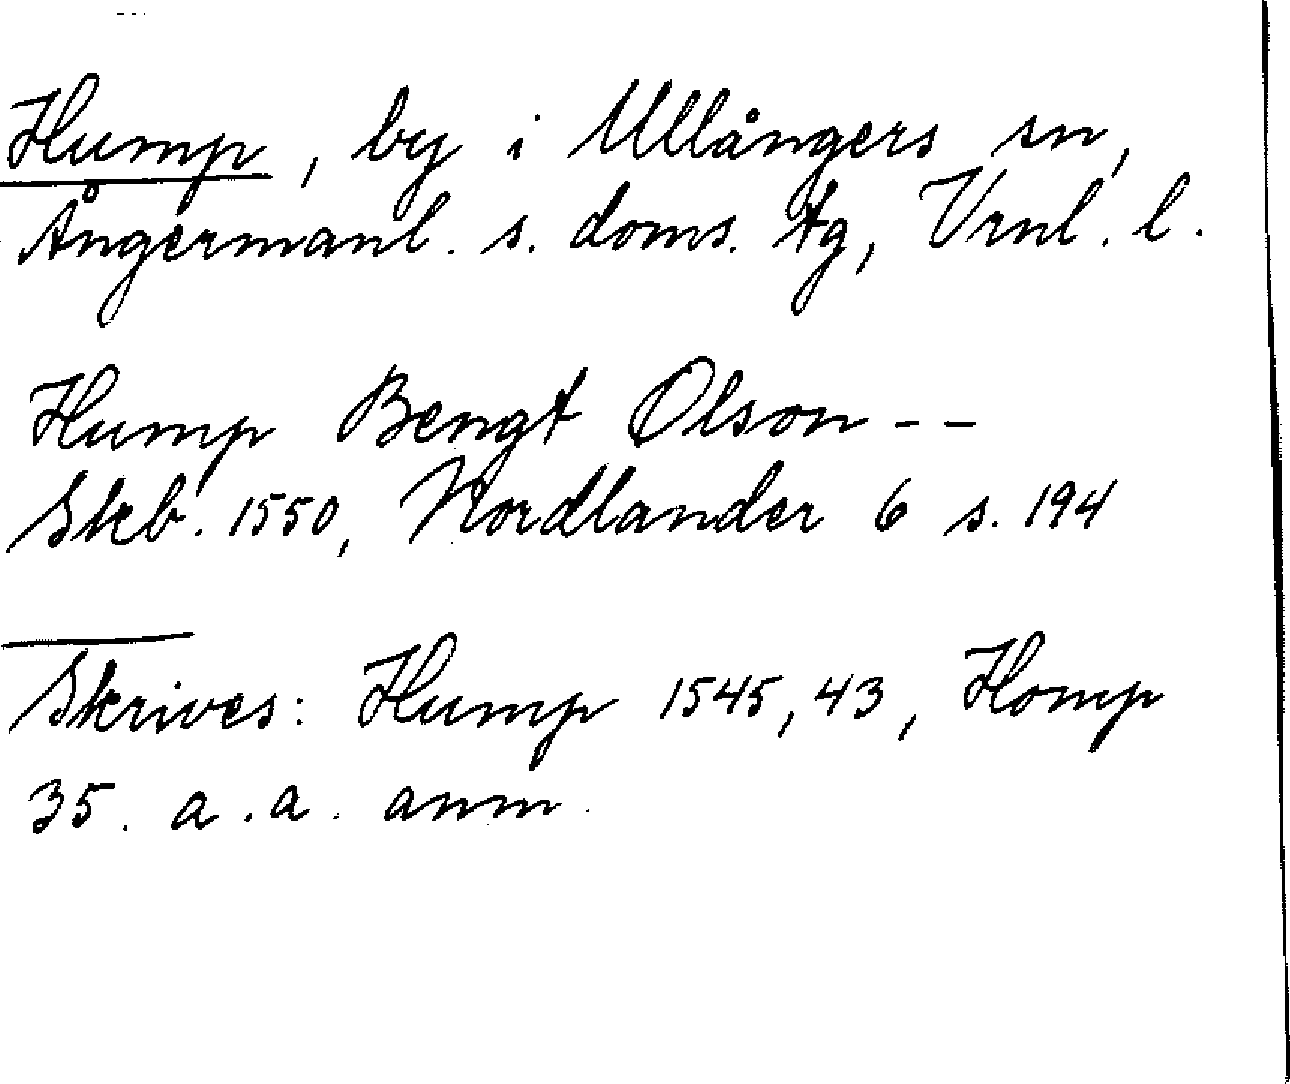 Hump, by i Ullångers sn,
Ångermanl. s. doms. tg, Vrnl. l.
Hump Bengt Olson - -
Skb. 1550, Nordlander 6 s. 194
Skrives: Hump 1545, 43, Homp
35. a. a. anm.